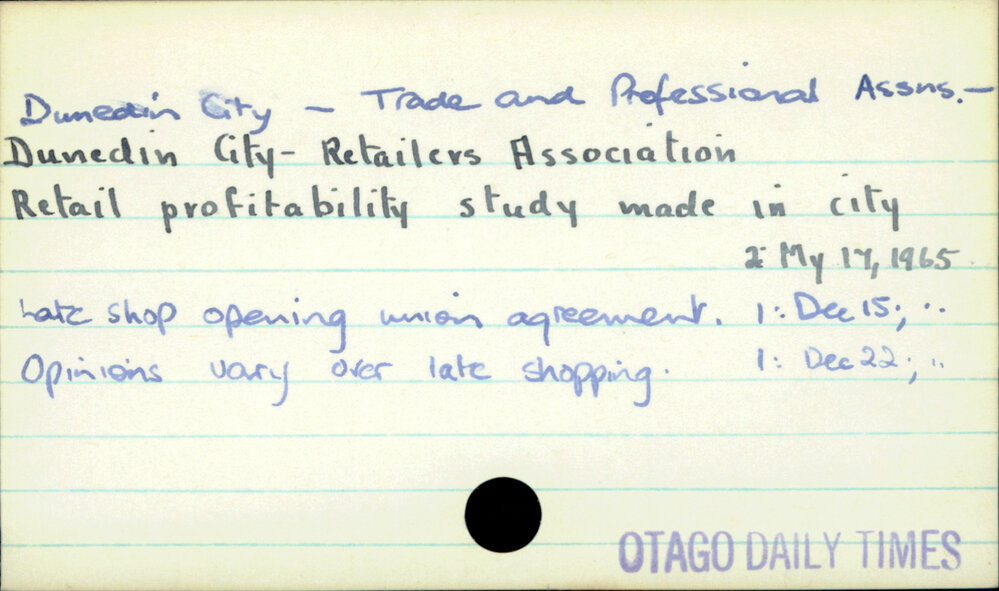 Dunedin City - Trade and Professional Assns.-
Dunedin City- Retailers Association
Retail profitability study made in city
2: My 17, 1965
Late shop opening union agreement. 1: Dec 15; ..
Opinions vary over late shopping. 1: Dec 22; ..
OTAGO DAILY TIMES